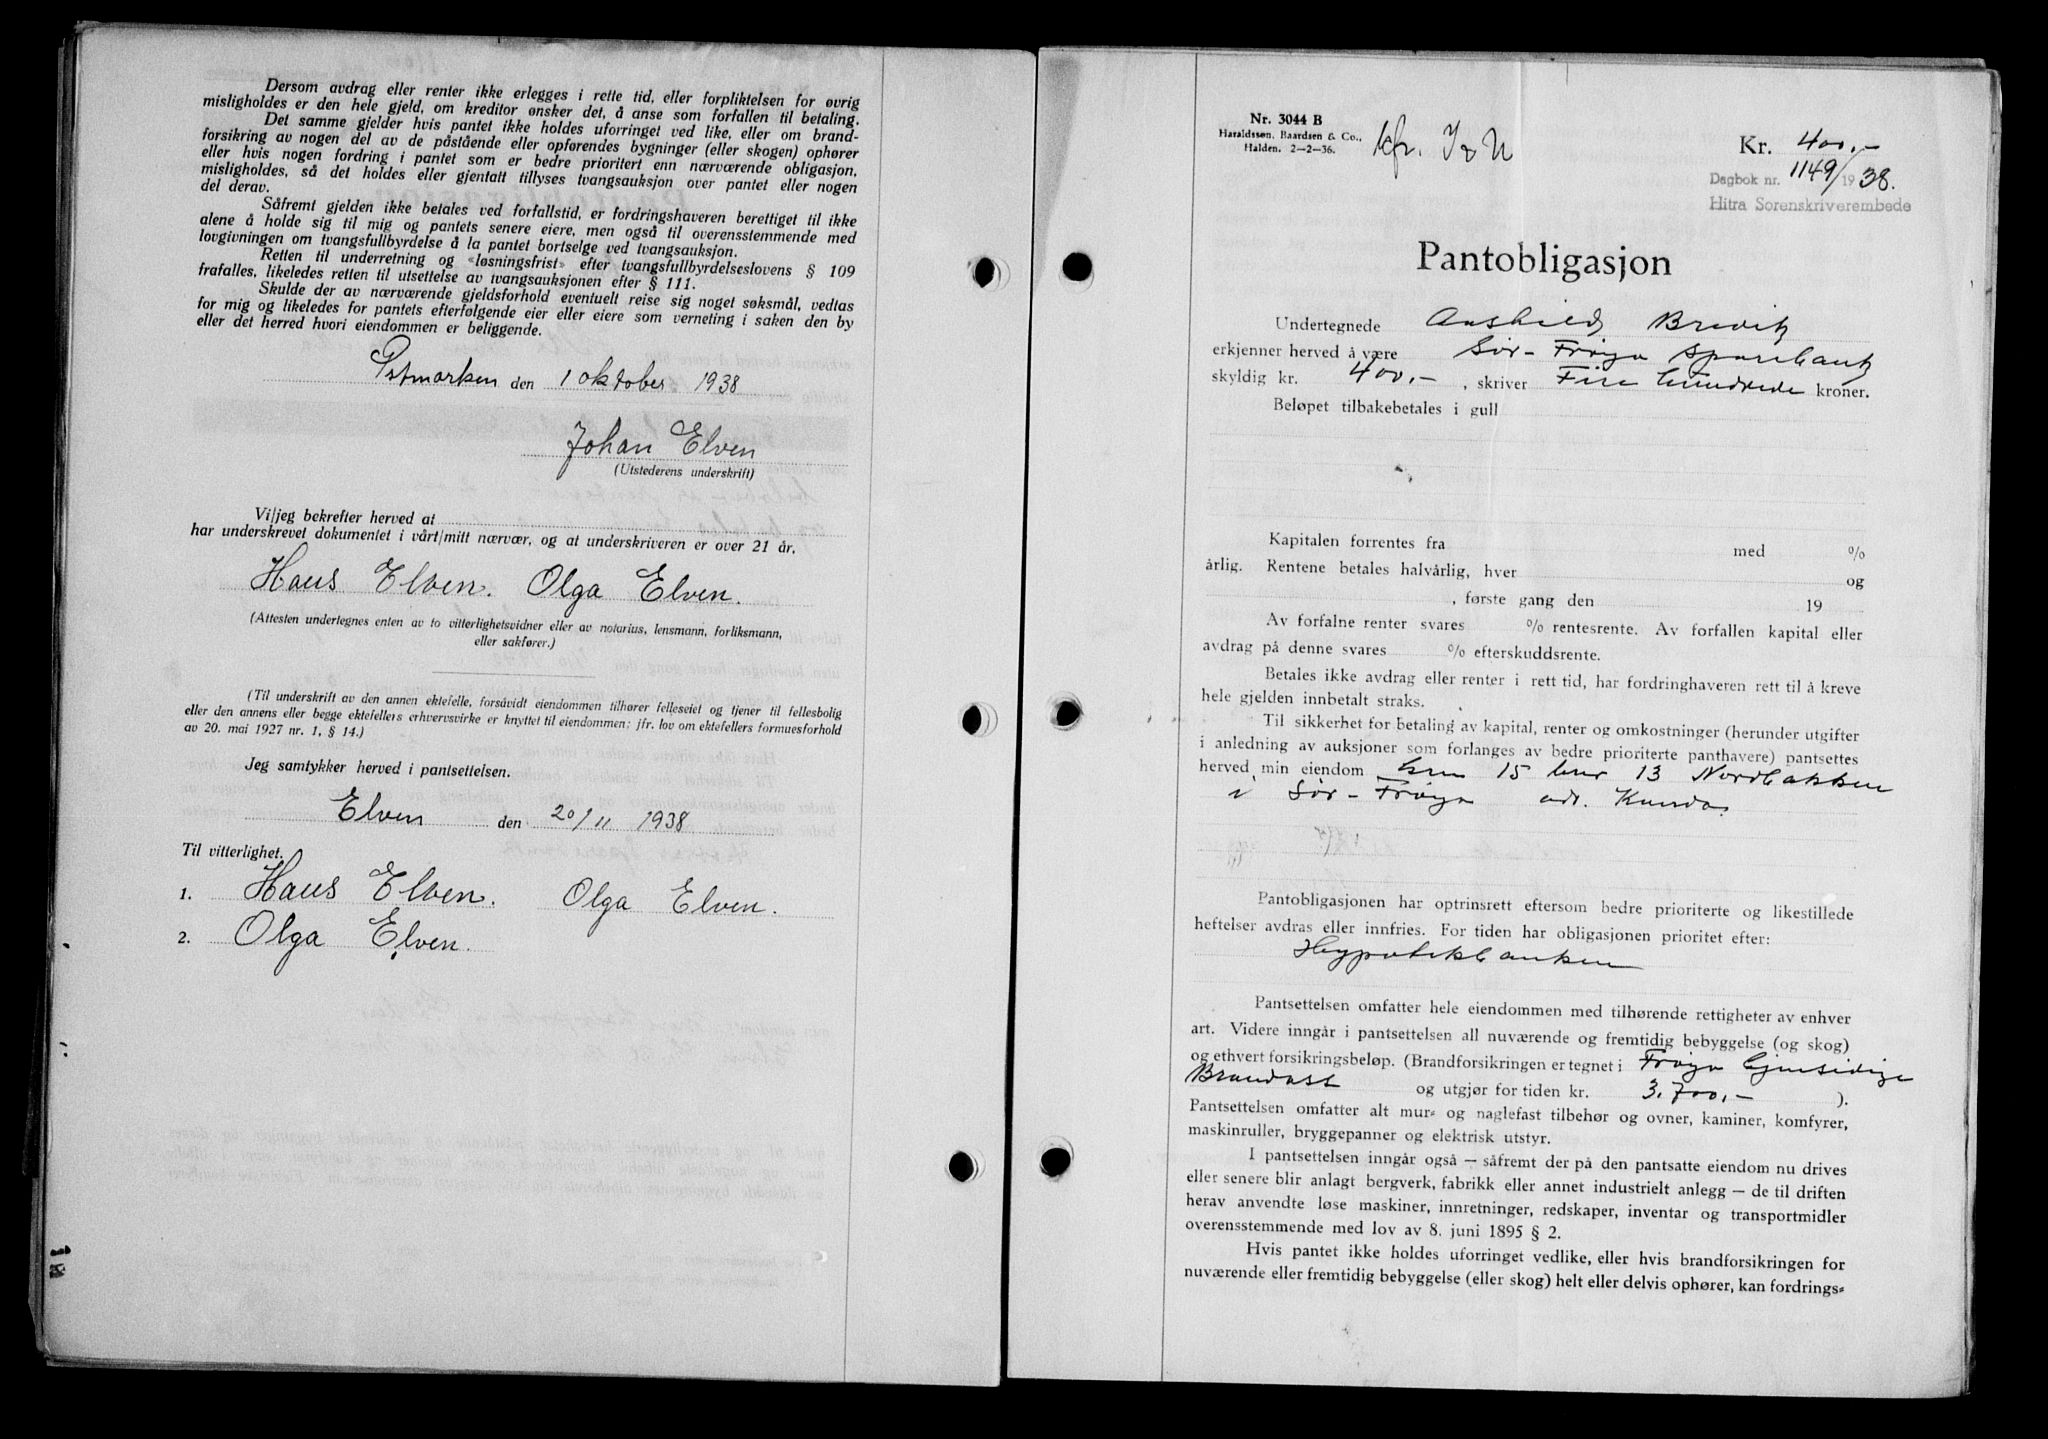 Dersom avdrag eller renter ikke erlegges i rette tid, eller forpliktelsen for øvrig
misligholdes er den hele gjeld, om kreditor ønsker det, å anse som forfallen til betaling.
Det samme gjelder hvis pantet ikke holdes uforringet ved like, eller om brand-
forsikring av nogen del av de påstående eller opførendes bygninger (eller skogen) ophører
eller hvis nogen fordring i pantet som er bedre prioritert enn nærværende obligasjon,
misligholdes, så det holdes eller gjentatt tillyses tvangsauksjon over pantet eller nogen
del derav.
Såfremt gjelden ikke betales ved forfallstid, er fordringshaveren berettiget til ikke
alene å holde sig til mig og pantets senere eiere, men også til overensstemmende med
lovgivningen om tvangsfullbyrdelse å la pantet bortselge ved tvangsauksjon.
Retten til underretning og «løsningsfrist» efter tvangsfullbyrdelseslovens § 109
frafalles, likeledes retten til utsettelse av tvangsauksjonen efter § 111.
Skulde der av nærværende gjeldsforhold eventuelt reise sig noget søksmål, vedtas
for mig og likeledes for pantets efterfølgende eier eller eiere som verneting i saken den by
eller det herred hvori eiendommen er beliggende.
den 1 oktober 1938
Johan Elven
(Utstederens underskrift)
Vi/jeg bekrefter herved at
har underskrevet dokumentet i vårt/mitt nærvær, og at underskriveren er over 21 år.
Hans Elven. Olga Elven.
(Attesten undertegnes enten av to vitterlighetsvidner eller av notarius, lensmann, forliksmann,
eller sakfører.)
(Til underskrift av den annen ektefelle, forsåvidt eiendommen tilhører felleseiet og tjener til fellesbolig
eller den annens eller begge ektefellers erhvervsvirke er knyttet til eiendommen; jfr. lov om ektefellers formuesforhold
av 20. mai 1927 nr. 1, § 14.)
Jeg samtykker herved i pantsettelsen.
Elven den 20/11 1938
Til vitterlighet.
1. Hans Elven. Olga Elven.
2. Olga Elven.
Nr. 3044 B
Haraldssen, Baardsen & Co.,
Halden. 2-2-36.
Kr. 400.-
Dagbok nr. 1149/1938.
Hitra Sorenskriverembede
Pantobligasjon
Undertegnede Aashild Brevik
erkjenner herved å være Sør-Frøya Sparebank
skyldig kr. 400.-, skriver Fire hundrede kroner.
Beløpet tilbakebetales i gull
Kapitalen forrentes fra med %
årlig. Rentene betales halvårlig, hver og
, første gang den 19
Av forfalne renter svares % rentesrente. Av forfallen kapital eller
avdrag på denne svares % efterskuddsrente.
Betales ikke avdrag eller renter i rett tid, har fordringhaveren rett til å kreve
hele gjelden innbetalt straks.
Til sikkerhet for betaling av kapital, renter og omkostninger (herunder utgifter
i anledning av auksjoner som forlanges av bedre prioriterte panthavere) pantsettes
herved min eiendom gnr 15 bnr 13 Nordbakken
i Sør-Frøya
Pantobligasjonen har optrinsrett eftersom bedre prioriterte og likestillede
heftelser avdras eller innfries. For tiden har obligasjonen prioritet efter:
Hypotekbanken
Pantsettelsen omfatter hele eiendommen med tilhørende rettigheter av enhver
art. Videre inngår i pantsettelsen all nuværende og fremtidig bebyggelse (og skog)
og ethvert forsikringsbeløp. (Brandforsikringen er tegnet i Frøya Gjensidige
Brandass og utgjør for tiden kr. 3.700,- ).
Pantsettelsen omfatter alt mur- og naglefast tilbehør og ovner, kaminer, komfyrer,
maskinruller, bryggepanner og elektrisk utstyr.
I pantsettelsen inngår også — såfremt der på den pantsatte eiendom nu drives
eller senere blir anlagt bergverk, fabrikk eller annet industrielt anlegg — de til driften
herav anvendte løse maskiner, innretninger, redskaper, inventar og transportmidler
overensstemmende med lov av 8. juni 1895 § 2.
Hvis pantet ikke holdes uforringet vedlike, eller hvis brandforsikringen for
nuværende eller fremtidig bebyggelse (eller skog) helt eller delvis ophører, kan fordrings-